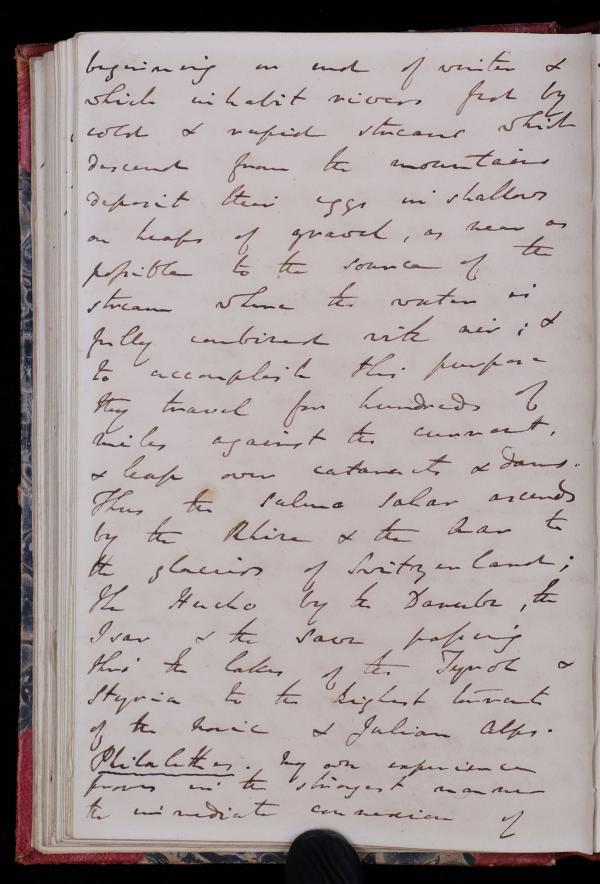 beginning or end of winter &
which inhabit rivers fed by
cold & rapid streams which
descend from the mountains
deposit their eggs in shallows
on heaps of gravel, as near as
possible to the source of the
stream where the water is
fully combined with air; &
to accomplish this purpose
they travel for hundreds of
miles against the current,
& leap over cataracts & dams.
Thus the Salmo Salar ascends
by the Rhine & the Aar to
the glaciers of Switzerland;
The Hucho by the Danube, the
Isar & the Save passing
thro the lakes of the Tyrol &
Styria to the highest torrents
of the Noric & Julian Alps.
Philalethes. My own experience
proves in the strongest manner
the immediate connexion of